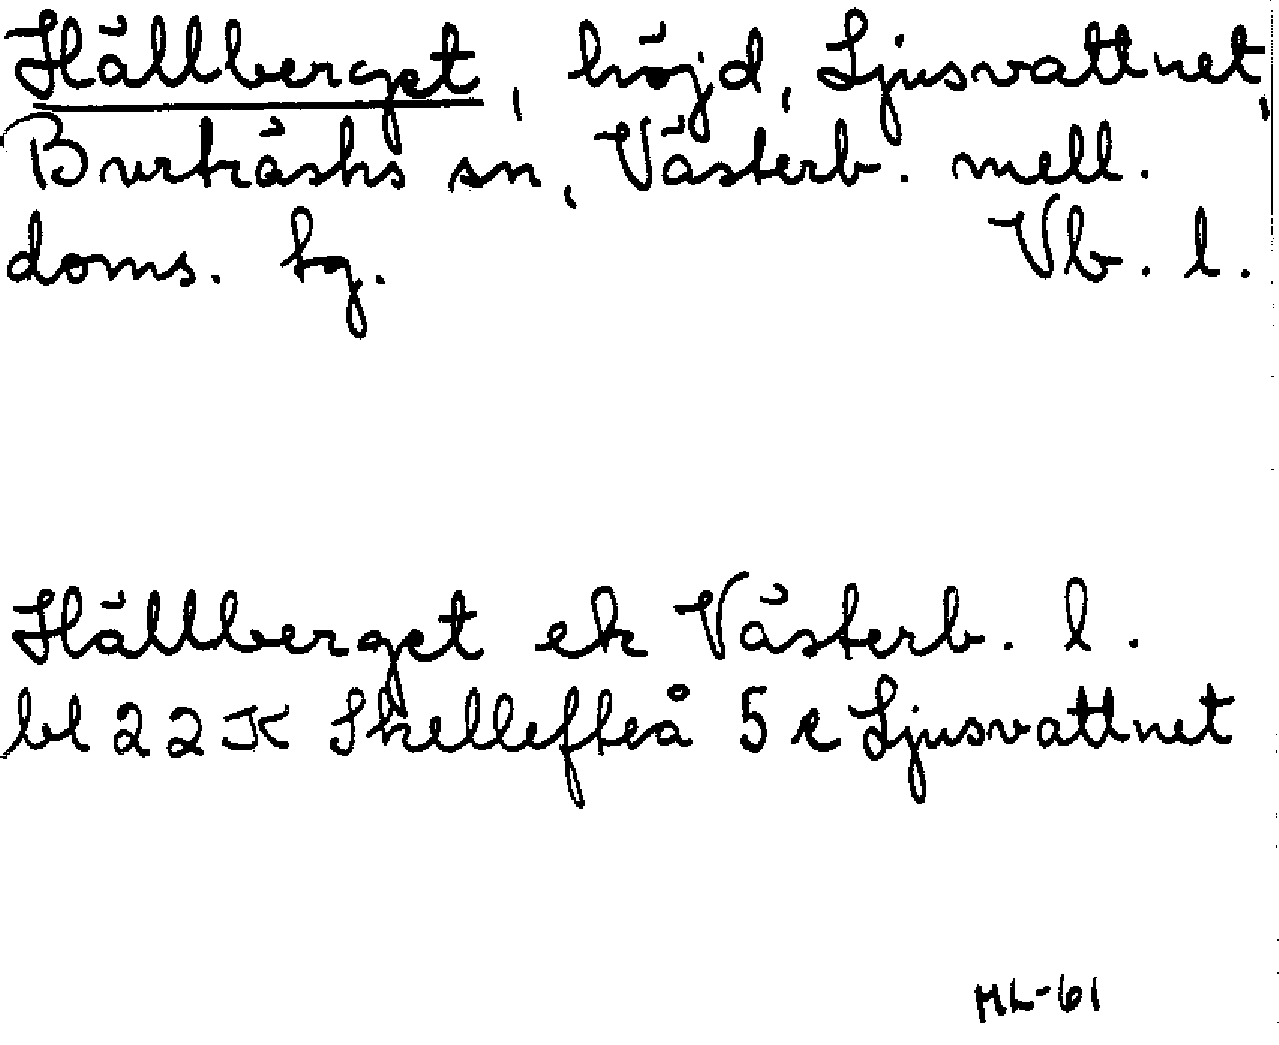 Hällberget, höjd, Ljusvattnet,
Burträsks sn, Västerb. mell.
doms. tg. Vb. l.
Hällberget ek Västerb. l.
bl 22K Skellefteå 5 c Ljusvattnet
ML-61